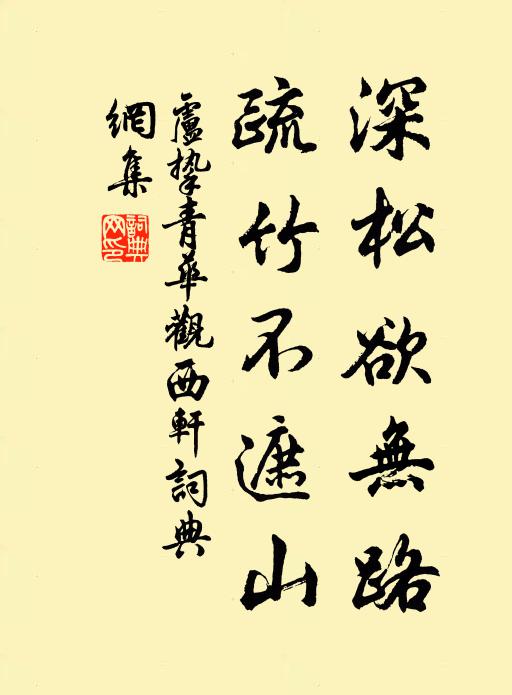 深松欲無路
疏竹不遮山
盧摯青華觀西軒詞典
網集
詞典
网印